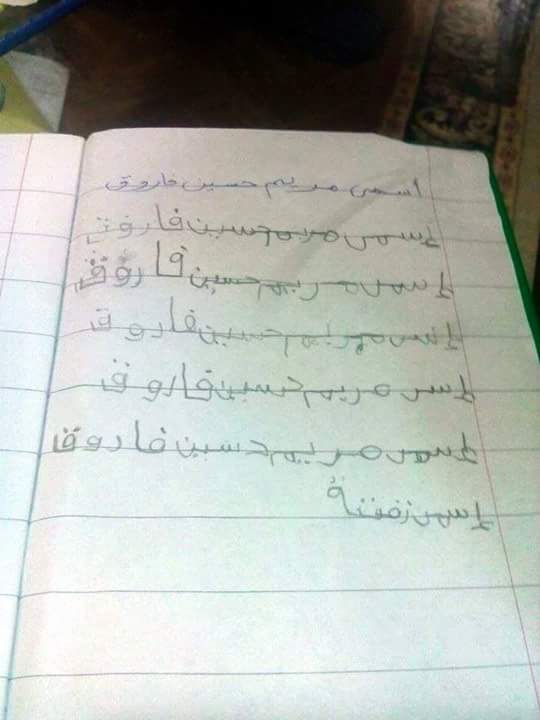 اسمى مريم حسين فاروق
إسمى مريم حسين فاروق
إسمى مريم حسين فاروق
إسمى مريم حسين فاروق
إسمى مريم حسين فاروق
إسمى مريم حسين فاروق
إسمى زفتة